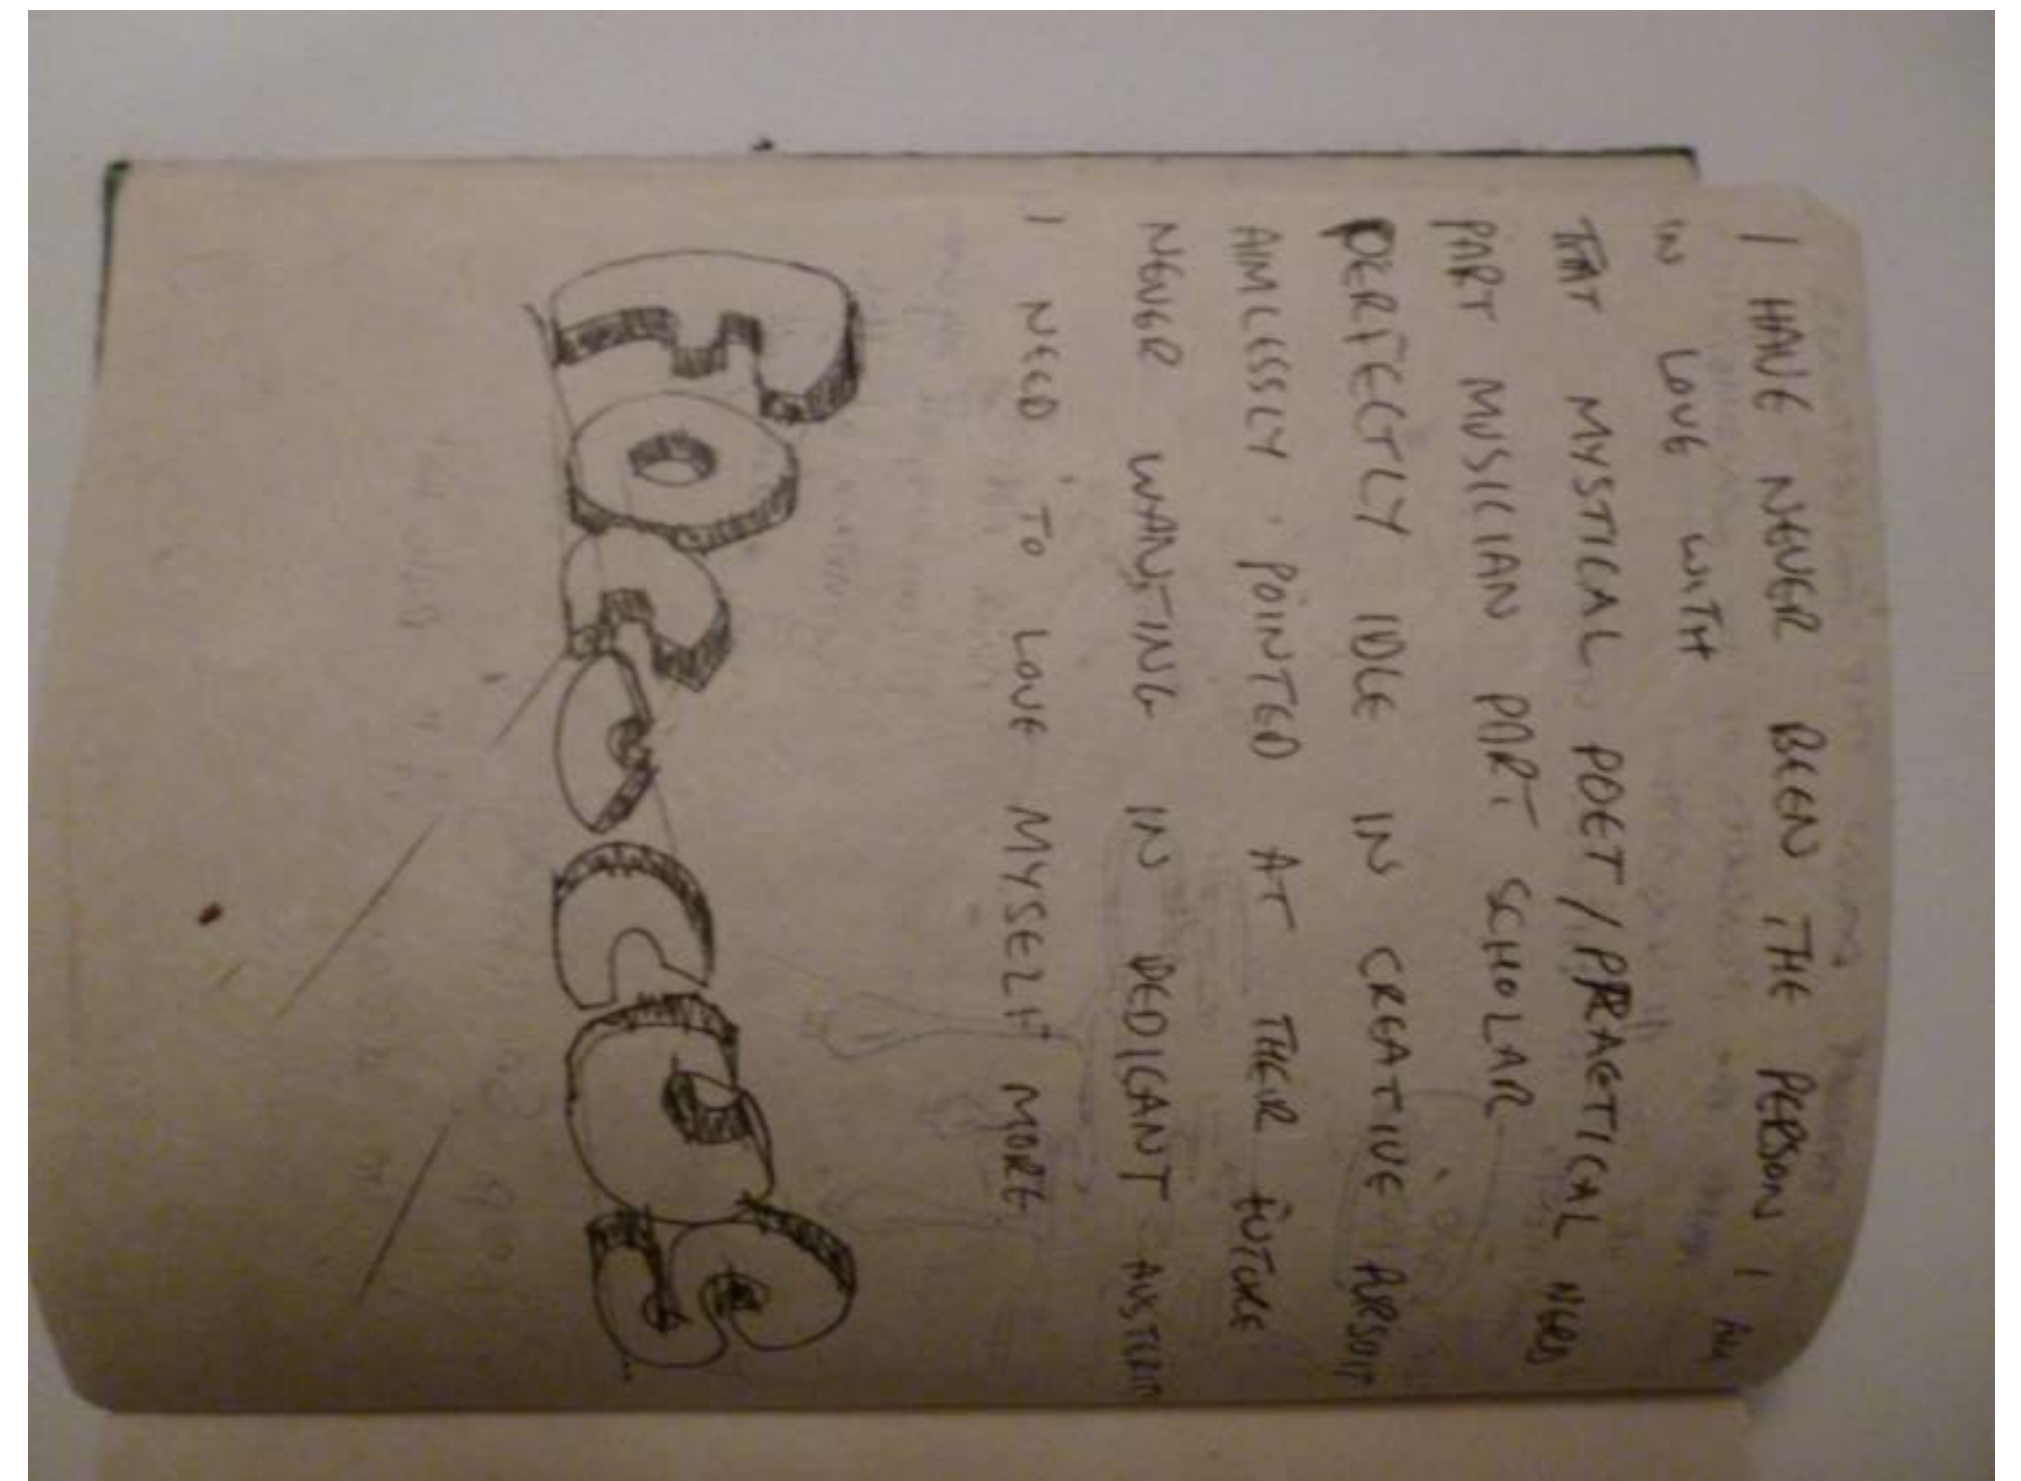 I HAVE NEVER BEEN THE PERSON I AM
IN LOVE WITH
THAT MYSTICAL POET/PRACTICAL NERD
PART MUSICIAN PART SCHOLAR
PERFECTLY IDLE IN CREATIVE PURSUIT
AIMLESSLY POINTED AT THEIR FUTURE
NEVER WANTING IN DEDICANT AUSTERITY
I NEED TO LOVE MYSELF MORE